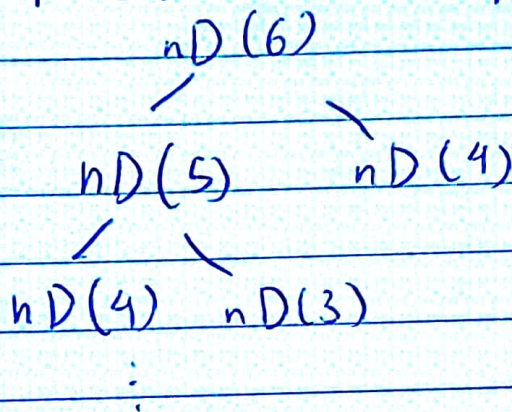 nD(6)
nD(5) nD(4)
nD(4) nD(3)
⋮